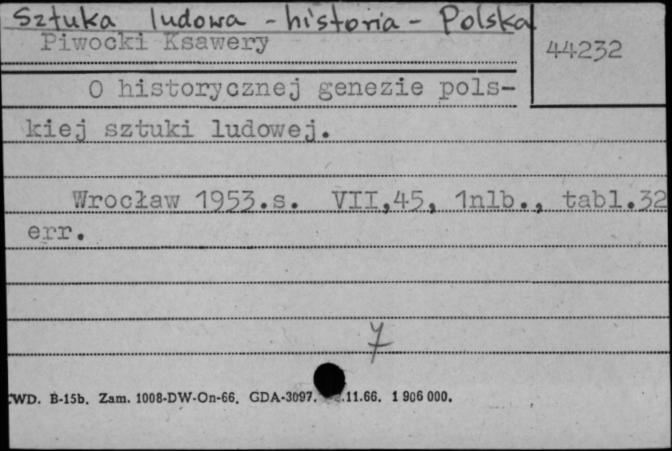 Sztuka ludowa - historia - Polska
Piwocki Ksawery
44232
O historycznej genezie pols-
kiej sztuki ludowej.
Wrocław 1953.s. VII,45, 1nlb., tabl.32
err.
7
WD. B-15b. Zam. 1008-DW-On-66. GDA-3097. .11.66. 1 906 000.